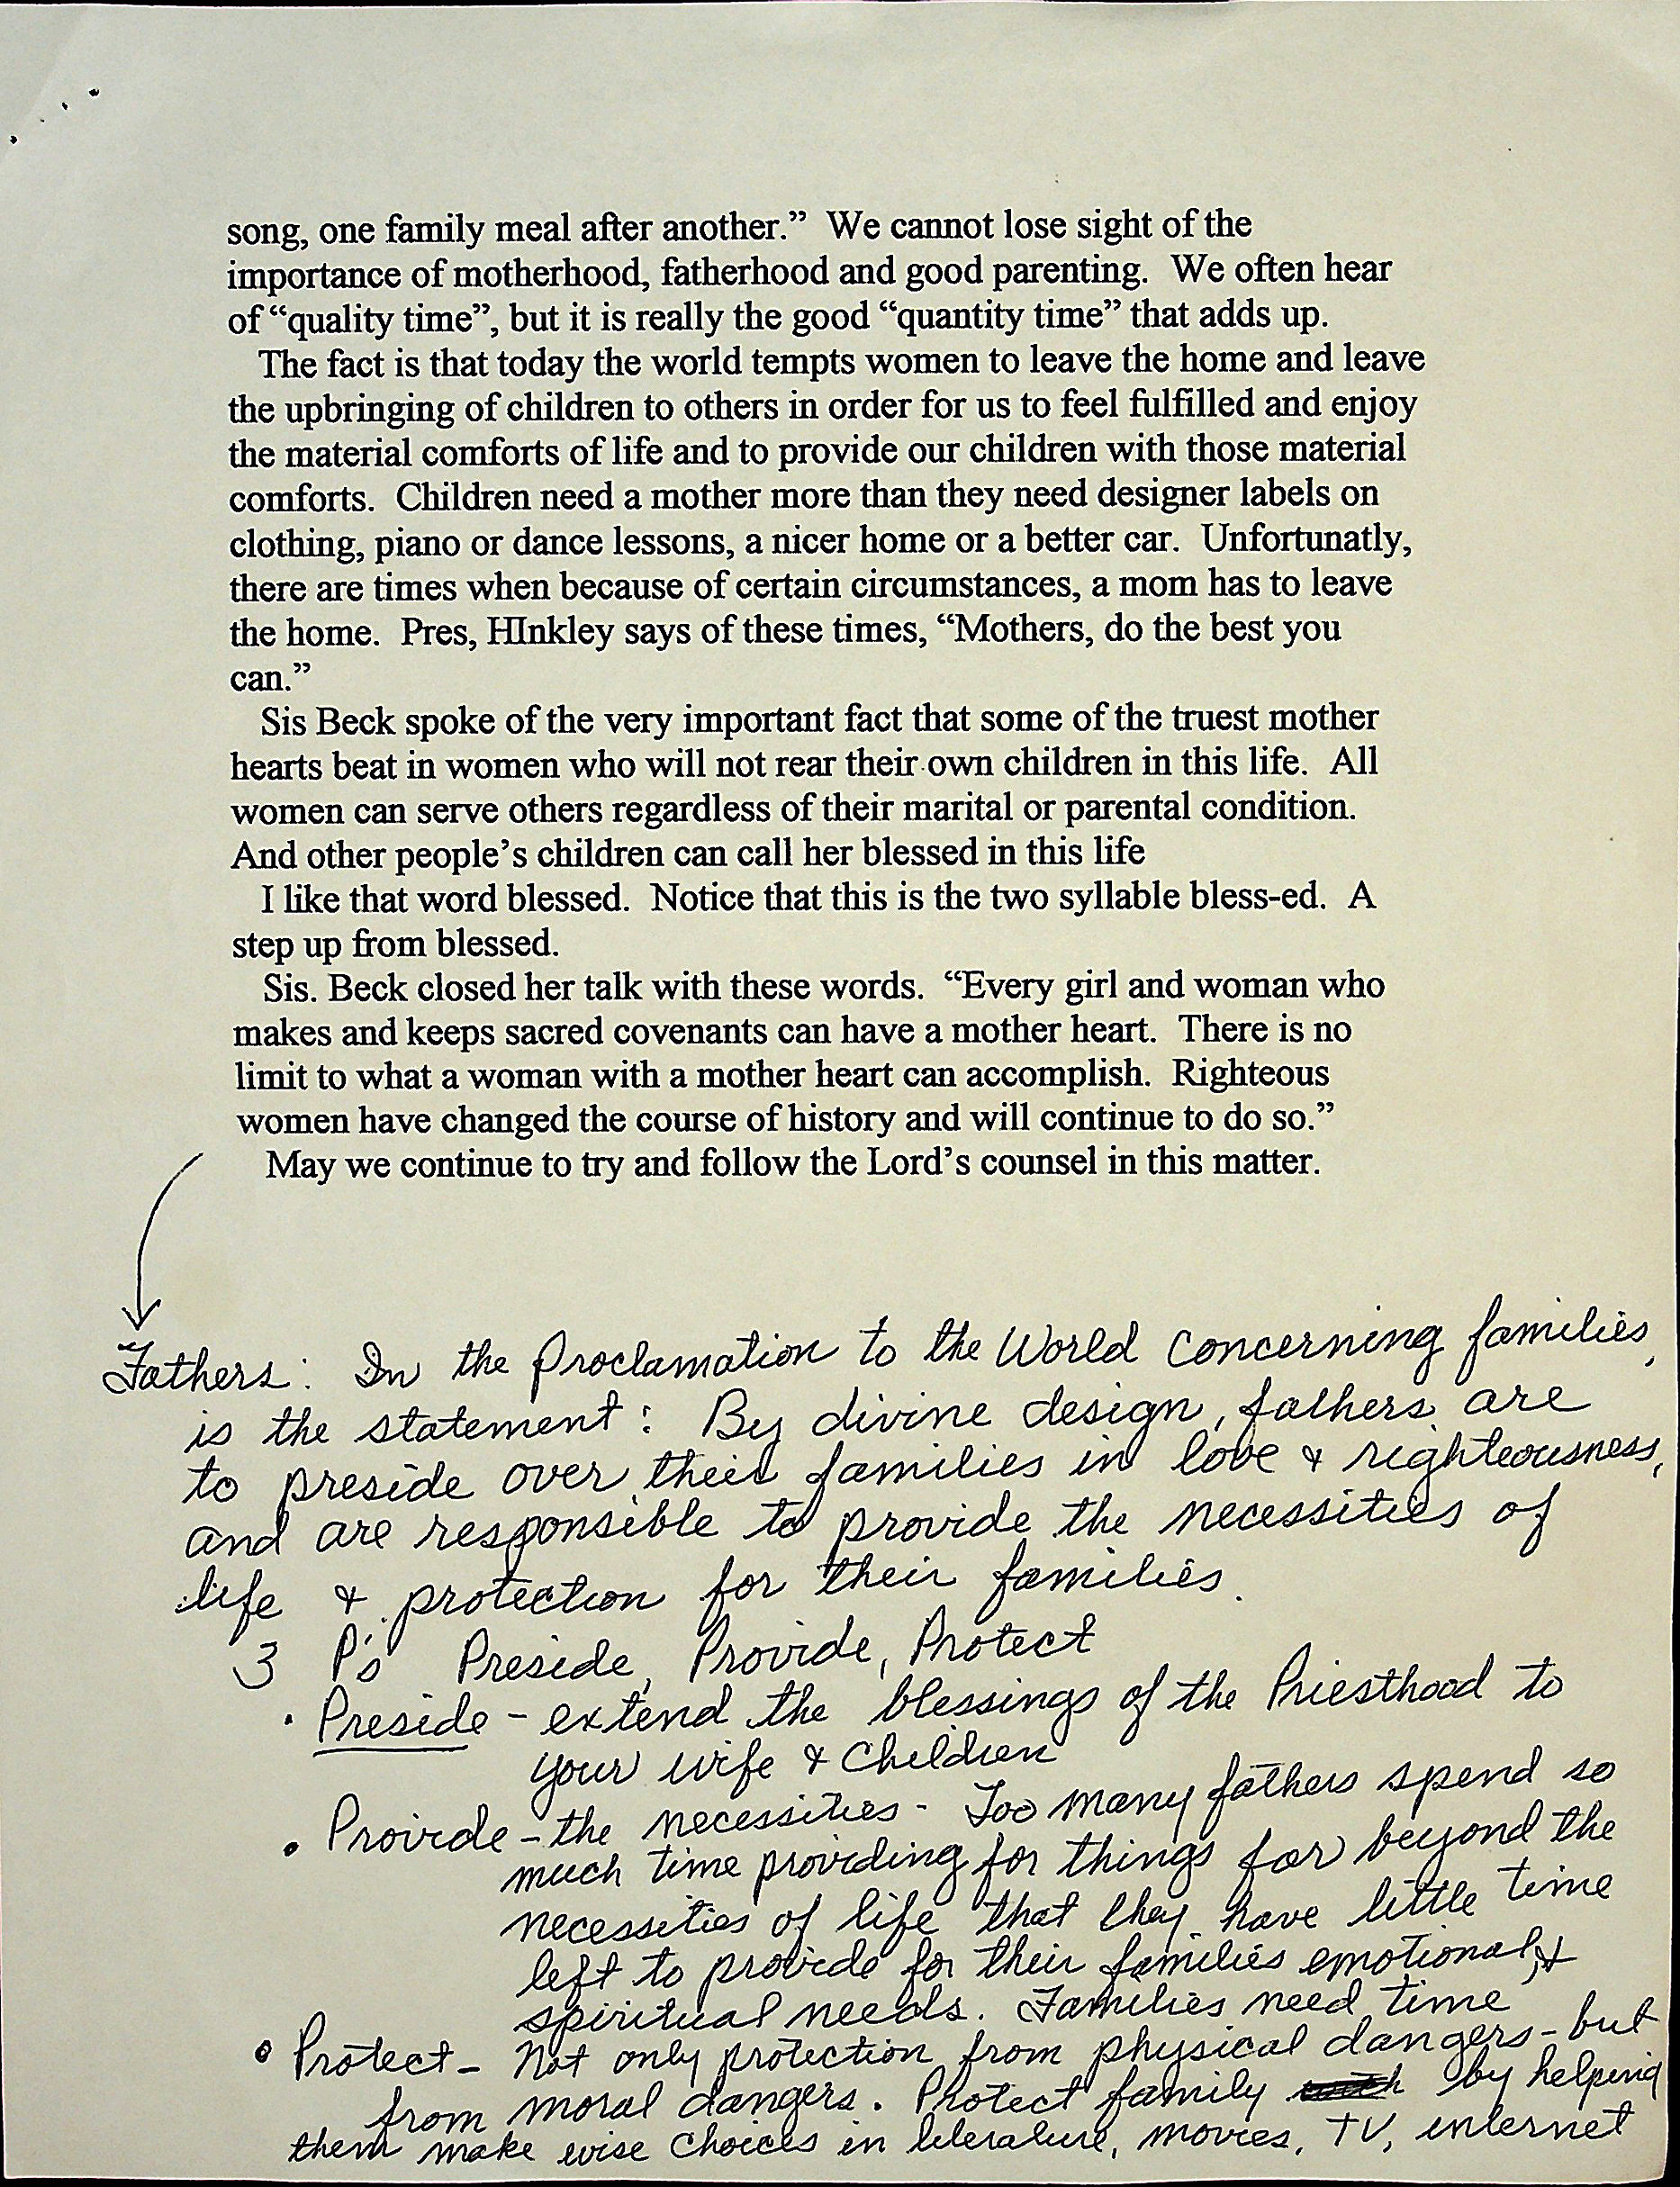 song, one family meal after another.”  We cannot lose sight of the
importance of motherhood, fatherhood and good parenting.  We often hear
of “quality time”, but it is really the good “quantity time” that adds up.
The fact is that today the world tempts women to leave the home and leave
the upbringing of children to others in order for us to feel fulfilled and enjoy
the material comforts of life and to provide our children with those material
comforts.  Children need a mother more than they need designer labels on
clothing, piano or dance lessons, a nicer home or a better car.  Unfortunatly,
there are times when because of certain circumstances, a mom has to leave
the home.  Pres, HInkley says of these times, “Mothers, do the best you
can.”
Sis Beck spoke of the very important fact that some of the truest mother
hearts beat in women who will not rear their own children in this life.  All
women can serve others regardless of their marital or parental condition.
And other people’s children can call her blessed in this life
I like that word blessed.  Notice that this is the two syllable bless-ed.  A
step up from blessed.
Sis. Beck closed her talk with these words.  “Every girl and woman who
makes and keeps sacred covenants can have a mother heart.  There is no
limit to what a woman with a mother heart can accomplish.  Righteous
women have changed the course of history and will continue to do so.”
May we continue to try and follow the Lord’s counsel in this matter.
Fathers: In the Proclamation to the World concerning families,
is the statement: By divine design, fathers are
to preside over their families in love & righteousness,
and are responsible to provide the necessities of
life & protection for their families.
3 P's Preside, Provide, Protect
• Preside - extend the blessings of the Priesthood to
your wife & Children
• Provide - the necessities - Too many fathers spend so
much time providing for things far beyond the
necessities of life that they have little time
left to provide for their families emotional &
spiritual needs. Families need time
• Protect - Not only protection from physical dangers - but
from moral dangers. Protect family by helping
them make wise choices in literature, movies, TV, internet